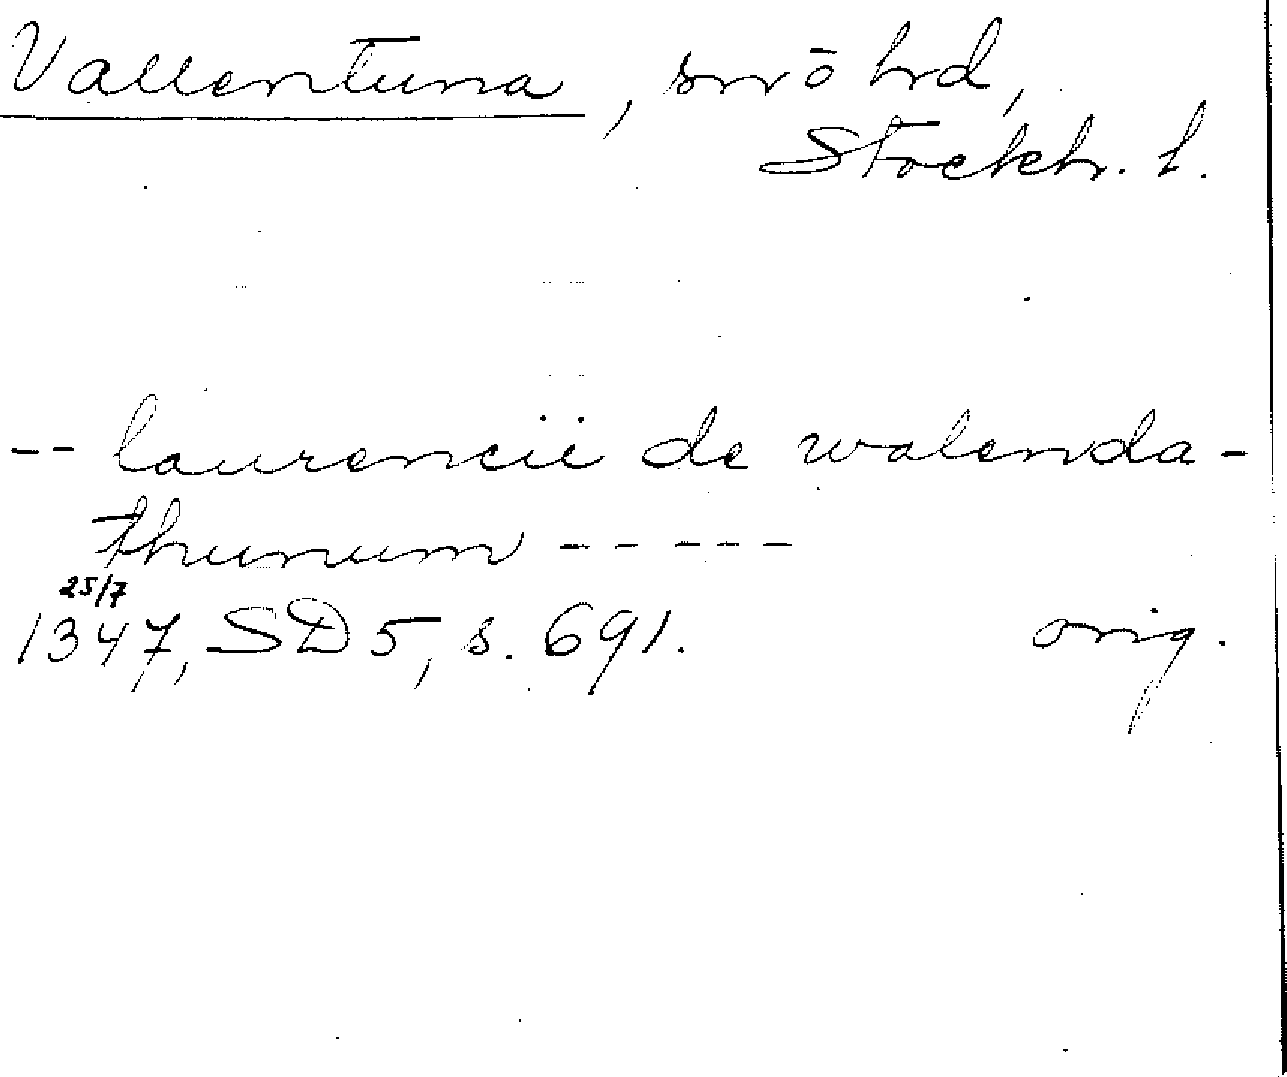 Vallentuna, snvõ hrd,
Stockh. l.
-- laurencii de walenda-
thunum -----
25/7
1347, SD 5, s. 691. orig.